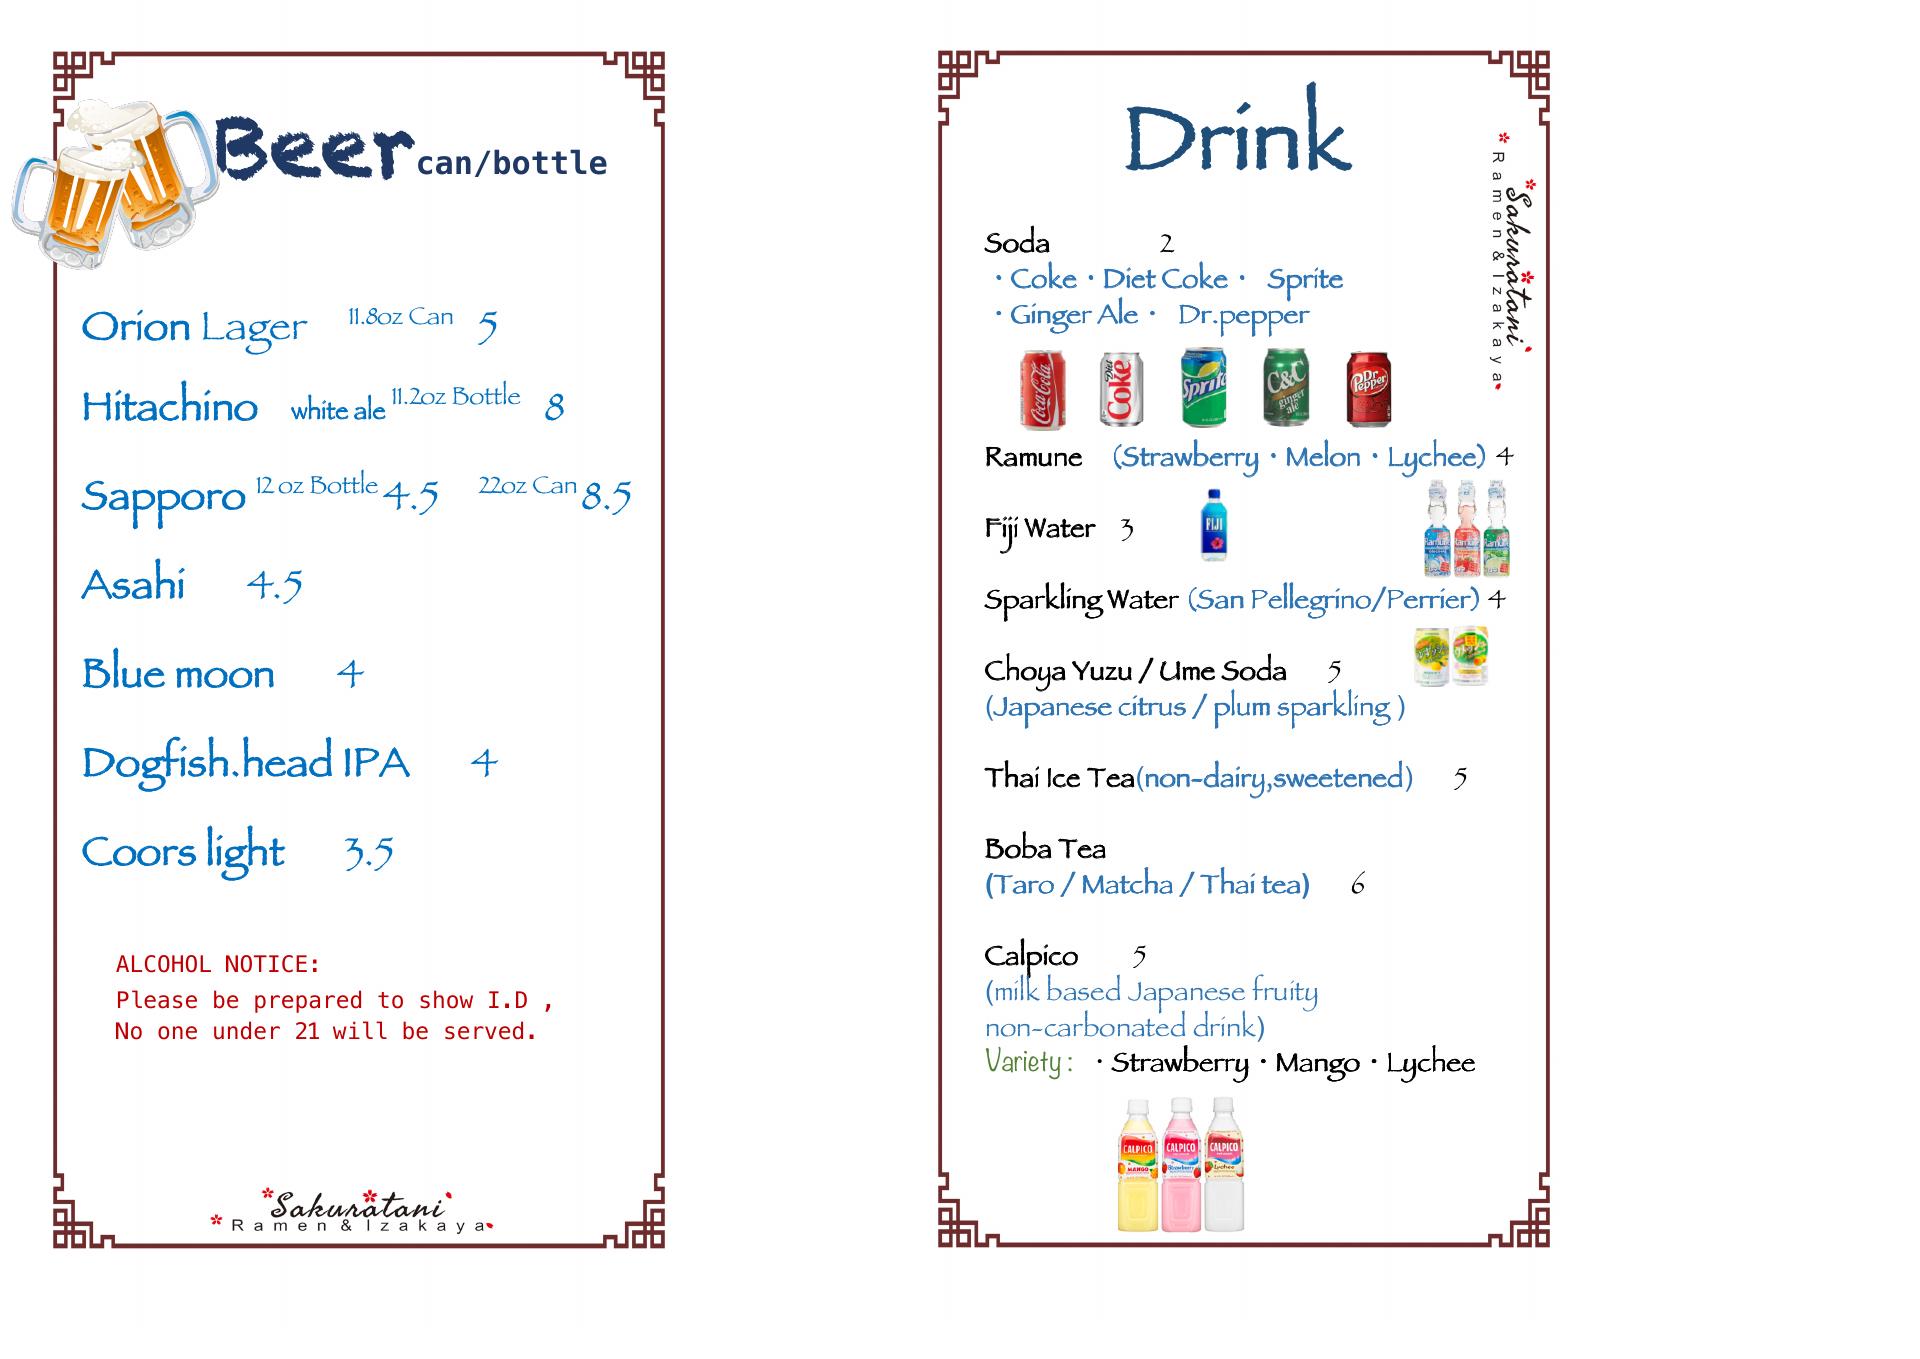 Beer can/bottle
Orion Lager 11.8oz Can 5
Hitachino white ale 11.2oz Bottle 8
Sapporo 12 oz Bottle 4.5 22oz Can 8.5
Asahi 4.5
Blue moon 4
Dogfish.head IPA 4
Coors light 3.5
ALCOHOL NOTICE:
Please be prepared to show I.D ,
No one under 21 will be served.
Sakuratani
Ramen & Izakaya
Drink
Sakuratani
Ramen & Izakaya
Soda 2
・Coke・Diet Coke・ Sprite
・Ginger Ale・ Dr.pepper
Coca-Cola
Diet Coke
Sprite
C&C ginger ale
Dr Pepper
Ramune (Strawberry・Melon・Lychee) 4
Fiji Water 3
FIJI
Ramune
Ramune
Ramune
Sparkling Water (San Pellegrino/Perrier) 4
Choya Yuzu / Ume Soda 5
(Japanese citrus / plum sparkling )
Thai Ice Tea(non-dairy,sweetened) 5
Boba Tea
(Taro / Matcha / Thai tea) 6
Calpico 5
(milk based Japanese fruity
non-carbonated drink)
Variety: ・Strawberry・Mango・Lychee
CALPICO
MANGO
CALPICO
Strawberry
CALPICO
Lychee